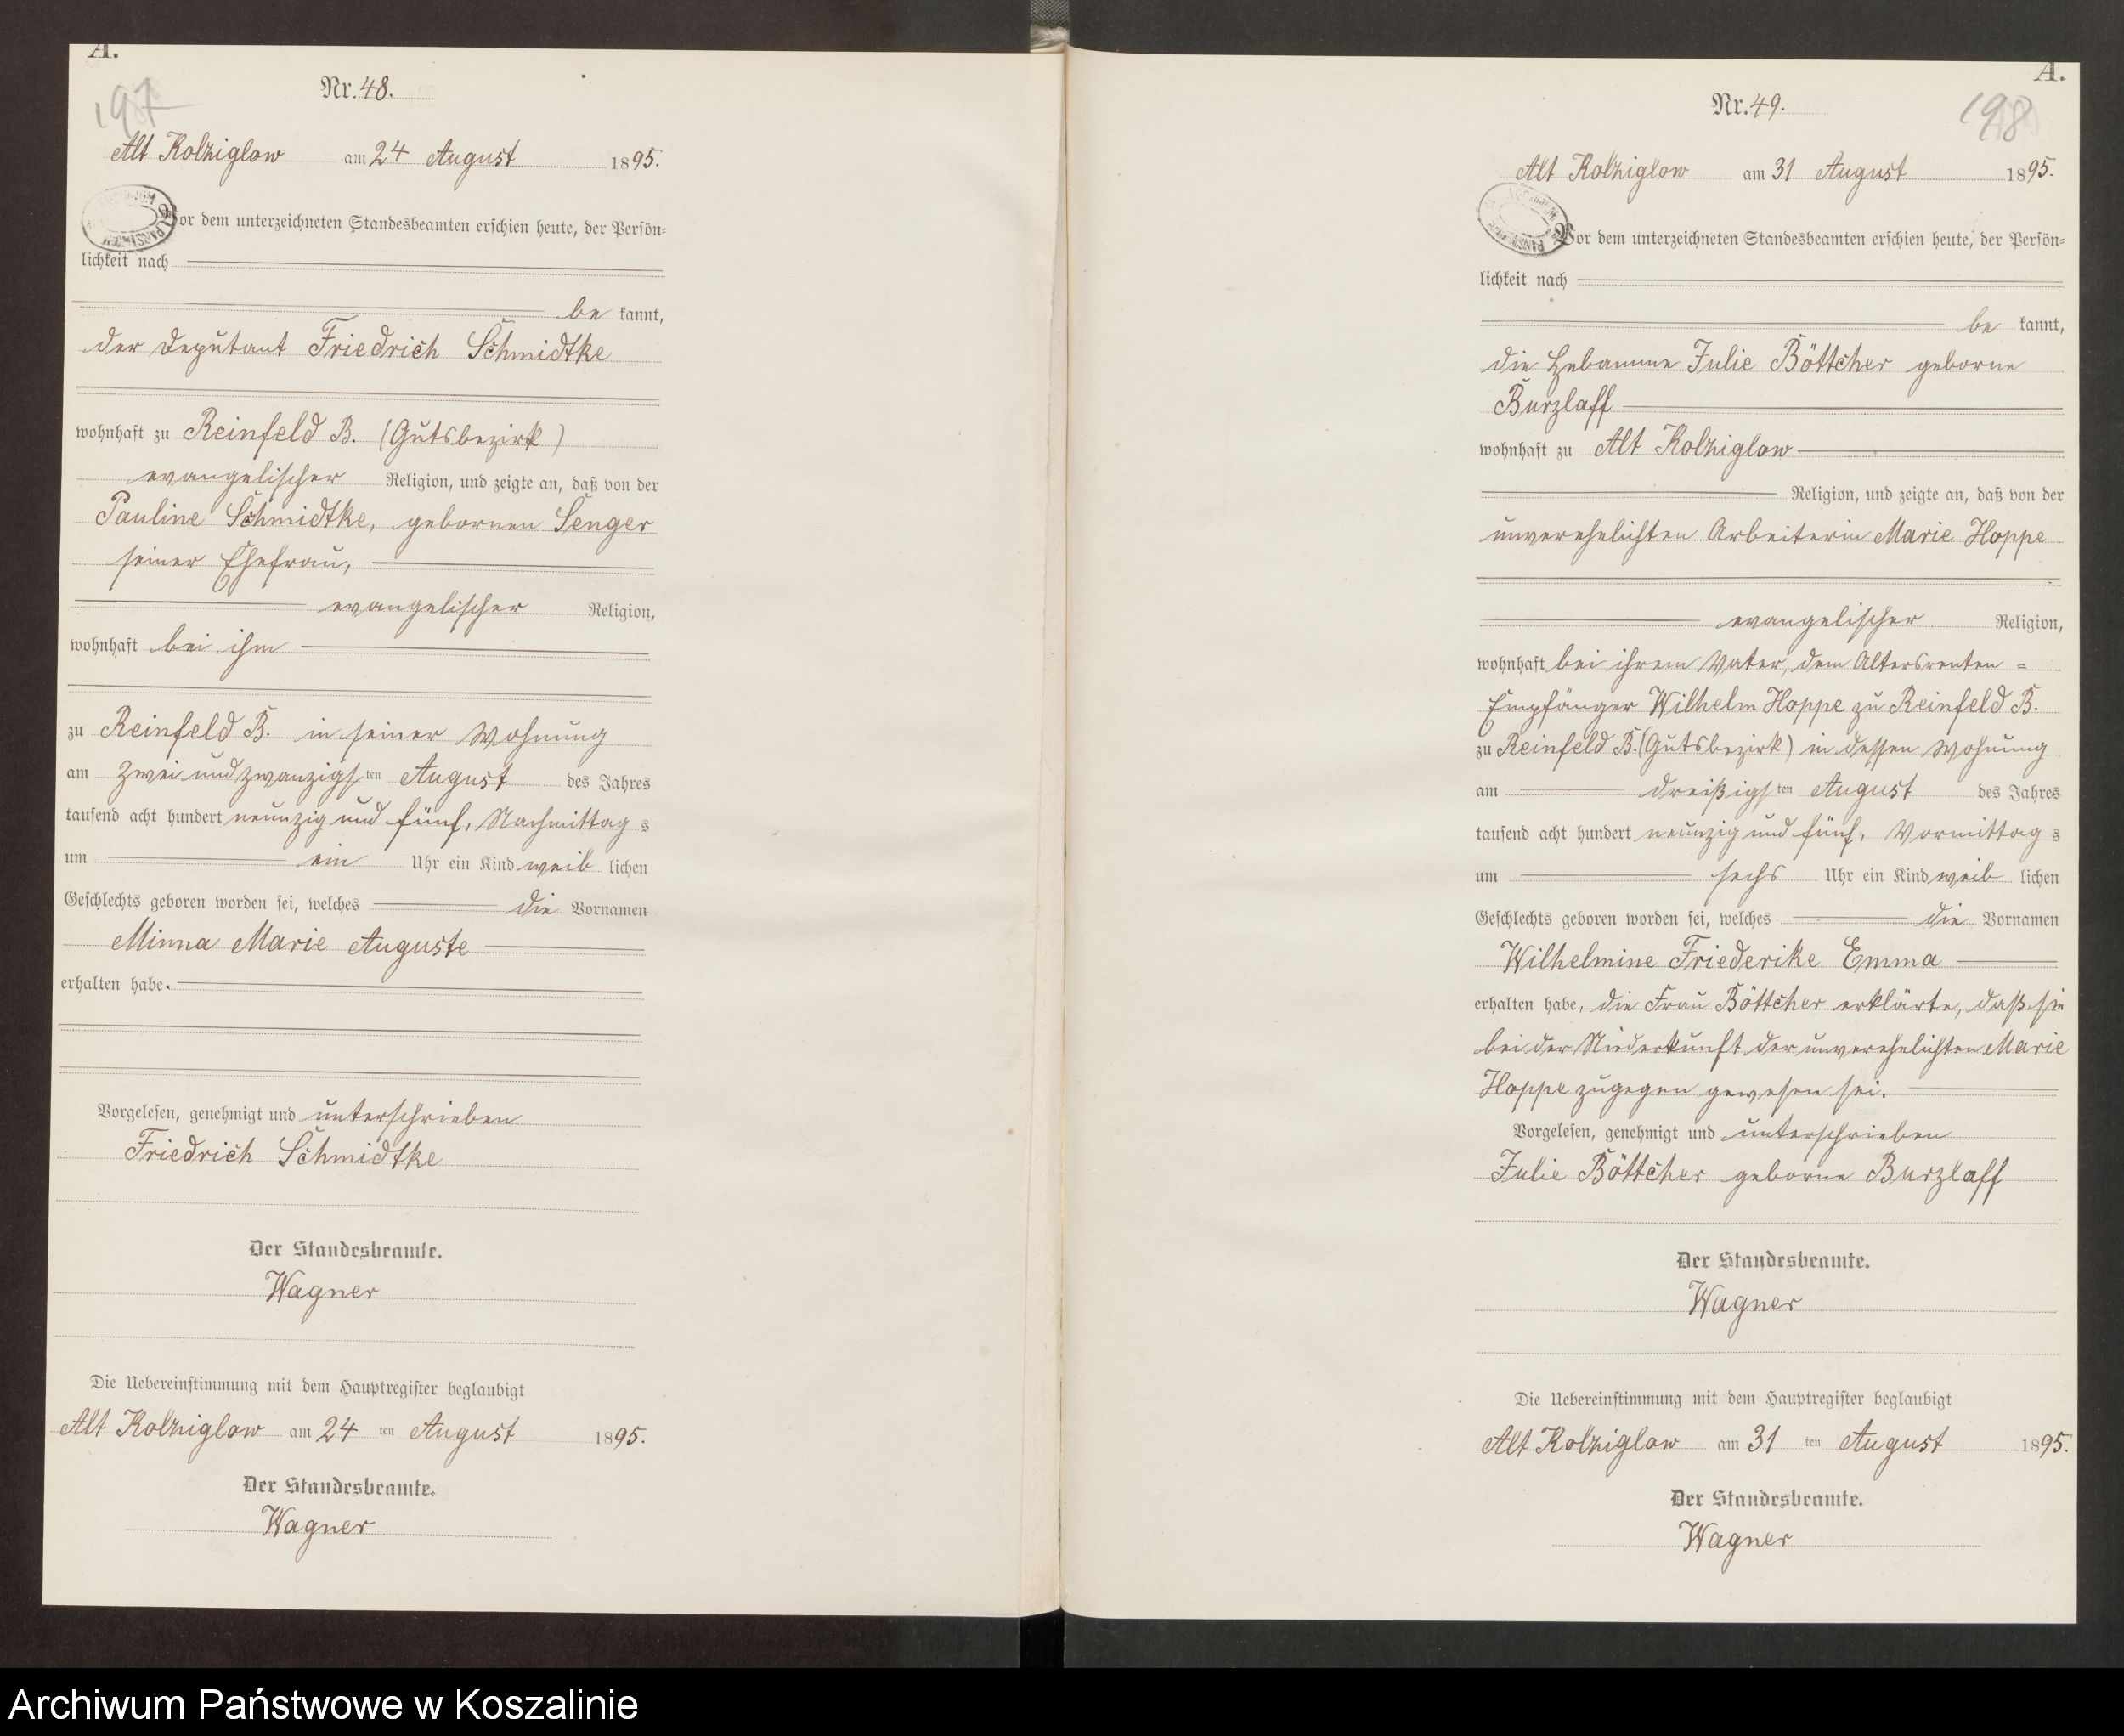 A.
197
Nr. 48.
Alt Kolziglow am 24 August 1895.
Vor dem unterzeichneten Standesbeamten erschien heute, der Persön=
lichkeit nach
be kannt,
der Deputant Friedrich Schmidtke
wohnhaft zu Reinfeld B. (Gutsbezirk)
evangelischer Religion, und zeigte an, daß von der
Pauline Schmidtke, gebornen Senger
seiner Ehefrau,
evangelischer Religion,
wohnhaft bei ihm
zu Reinfeld B. in seiner Wohnung
am zwei und zwanzigsten August des Jahres
tausend acht hundert neunzig und fünf, Nachmittag s
um ein Uhr ein Kind weib lichen
Geschlechts geboren worden sei, welches die Vornamen
Minna Marie Auguste
erhalten habe.
Vorgelesen, genehmigt und unterschrieben
Friedrich Schmidtke
Der Standesbeamte.
Wagner
Die Uebereinstimmung mit dem Hauptregister beglaubigt
Alt Kolziglow am 24 ten August 1895.
Der Standesbeamte.
Wagner
A.
198
Nr. 49.
Alt Kolziglow am 31 August 1895.
Vor dem unterzeichneten Standesbeamten erschien heute, der Persön=
lichkeit nach
be kannt,
die Hebamme Julie Böttcher geborne
Burzlaff
wohnhaft zu Alt Kolziglow
Religion, und zeigte an, daß von der
unverehelichten Arbeiterin Marie Hoppe
evangelischer Religion,
wohnhaft bei ihrem Vater, dem Altersrenten =
Empfänger Wilhelm Hoppe zu Reinfeld B.
zu Reinfeld B. (Gutsbezirk) in dessen Wohnung
am dreißigsten August des Jahres
tausend acht hundert neunzig und fünf, Vormittag s
um sechs Uhr ein Kind weib lichen
Geschlechts geboren worden sei, welches die Vornamen
Wilhelmine Friederike Emma
erhalten habe, die Frau Böttcher erklärte, daß sie
bei der Niederkunft der unverehelichten Marie
Hoppe zugegen gewesen sei.
Vorgelesen, genehmigt und unterschrieben
Julie Böttcher geborne Burzlaff
Der Standesbeamte.
Wagner
Die Uebereinstimmung mit dem Hauptregister beglaubigt
Alt Kolziglow am 31 ten August 1895.
Der Standesbeamte.
Wagner
Archiwum Państwowe w Koszalinie